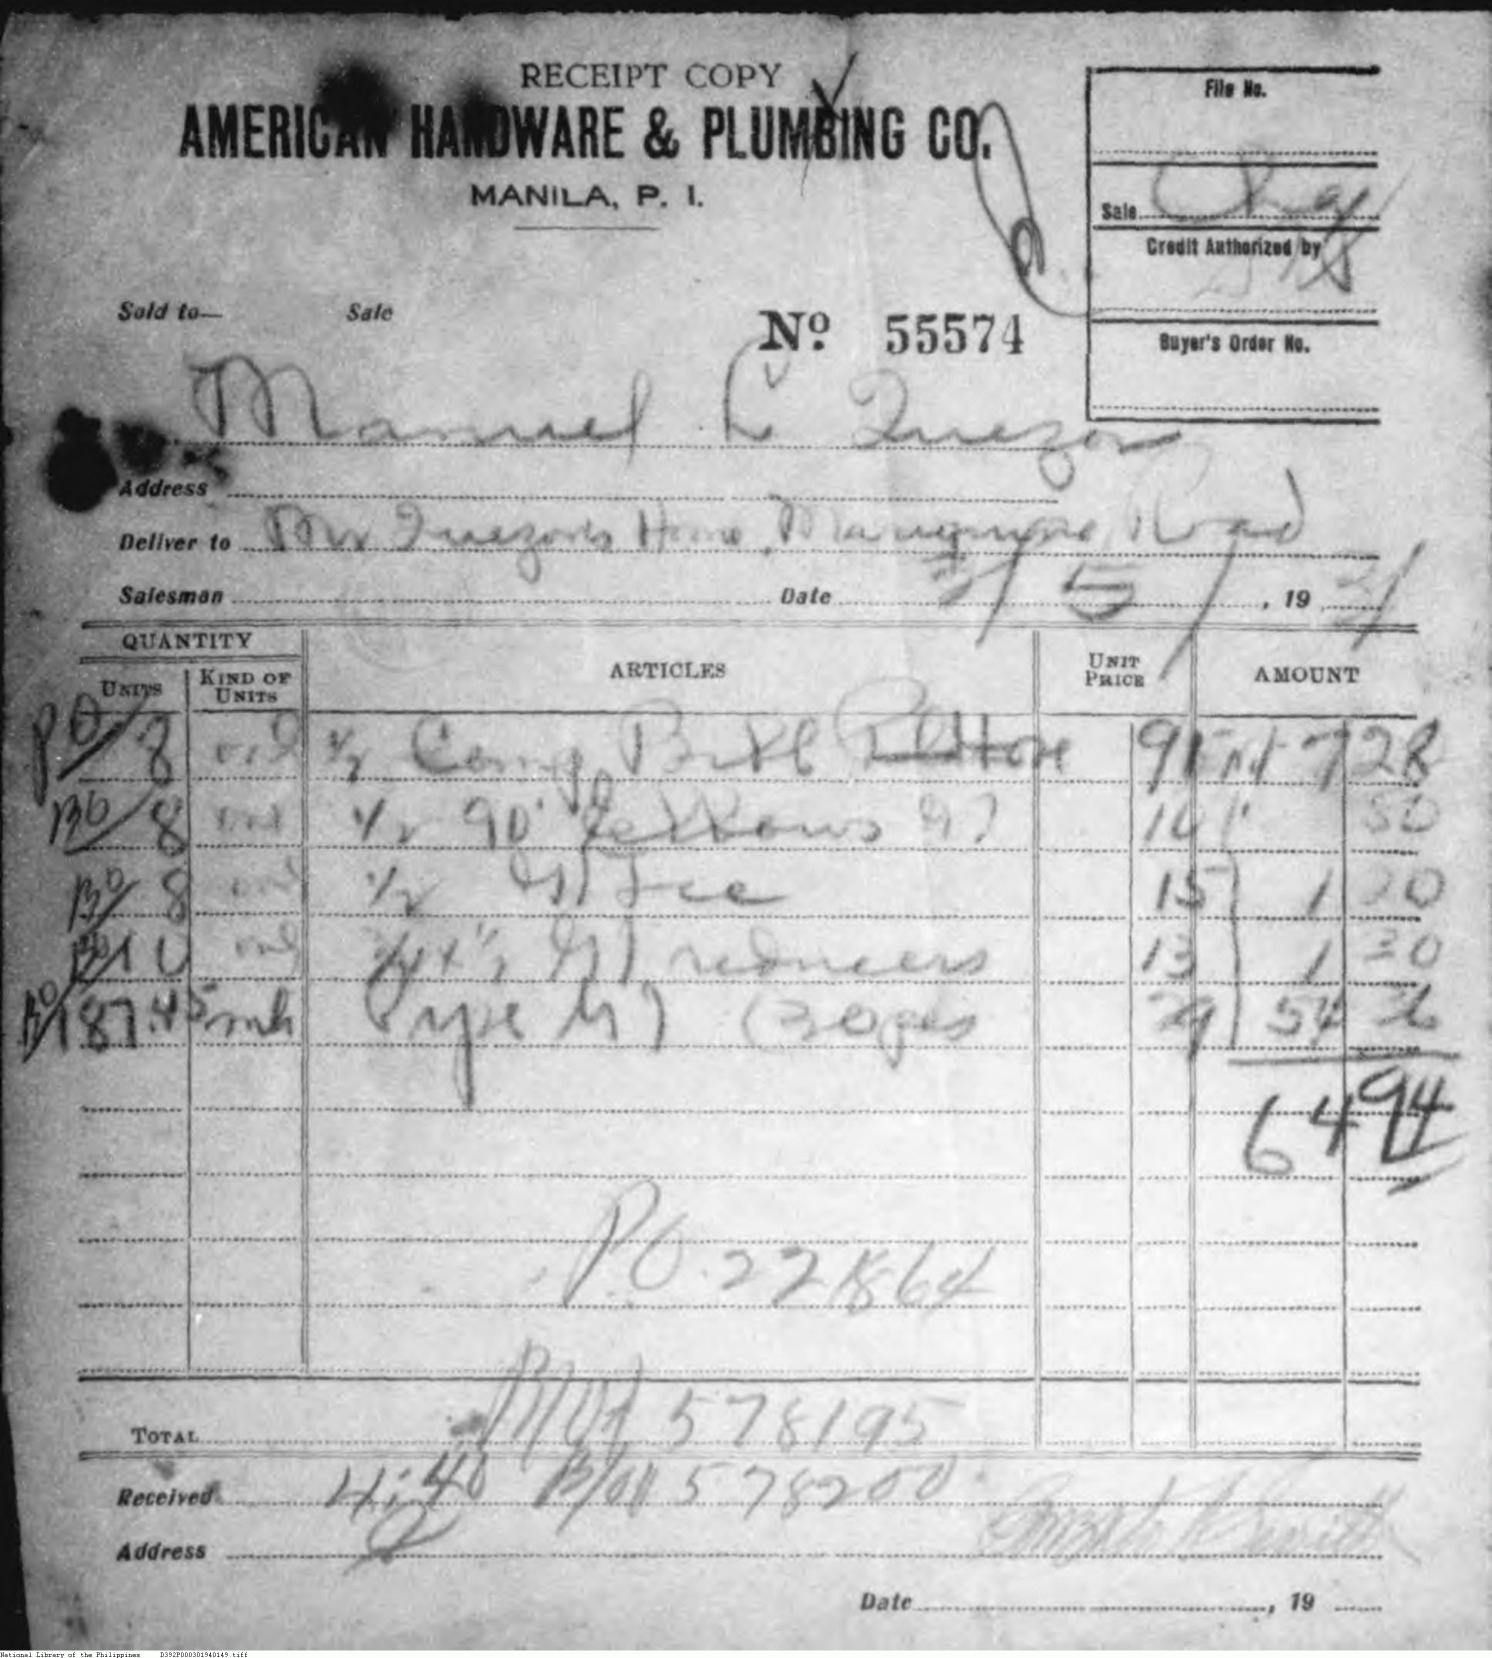 RECEIPT COPY
AMERICAN HARDWARE & PLUMBING CO.
MANILA, P. I.
File No.
Sale Chg
Credit Authorized by
Buyer's Order No.
Sold to— Sale
No 55574
Manuel L Quezon
Address
Deliver to Mr Quezon's Home, Road
Salesman Date 3/5/, 19 31
QUANTITY
UNITS KIND OF UNITS ARTICLES UNIT PRICE AMOUNT
PO/ 8 1/2 Comp Bibb Hose 91 7 28
BO/ 8 1/2 90° Elbows GI 10 80
BO/ 8 1/2 GI Tee 15 1 20
BO/ 10 GI reducers 13 1 30
BO/ 187.45 Pipe GI (30 pcs 29 54 36
64 94
PO 22864
578195
TOTAL
Received 4:40 578200
Address
Date , 19
National Library of the Philippines D392P000301940149.tiff